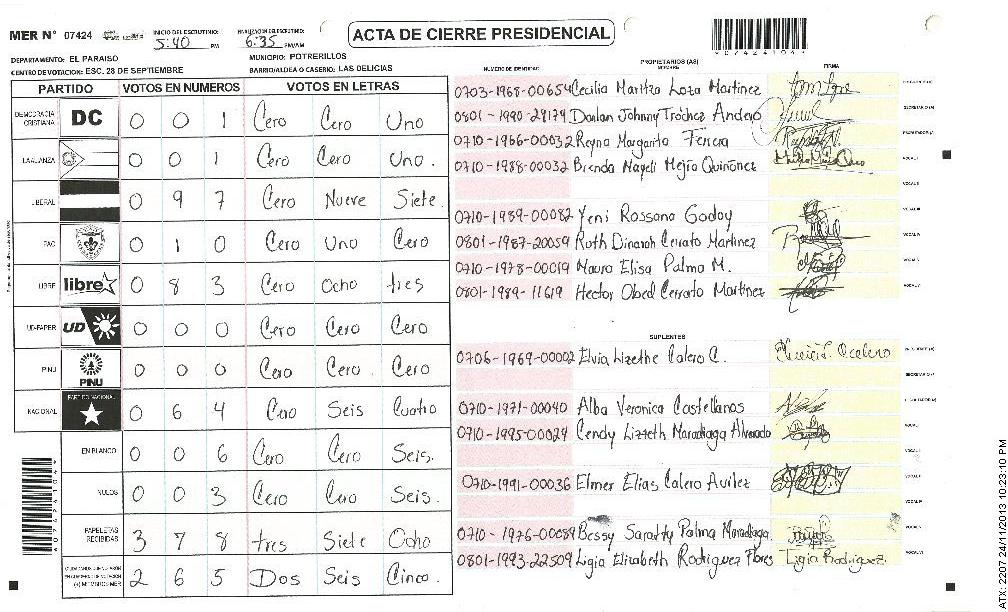 MER N° 07424
INICIO DEL ESCRUTINIO: 5:40 PM
FINALIZACION DEL ESCRUTINIO: 6:35 PM/AM
ACTA DE CIERRE PRESIDENCIAL
DEPARTAMENTO: EL PARAISO
MUNICIPIO: POTRERILLOS
CENTRO DE VOTACION: ESC. 28 DE SEPTIEMBRE
BARRIO/ALDEA O CASERIO: LAS DELICIAS
PARTIDO VOTOS EN NUMEROS VOTOS EN LETRAS
DEMOCRACIA CRISTIANA DC 0 0 1 Cero Cero Uno
LA ALIANZA 0 0 1 Cero Cero Uno.
LIBERAL 0 9 7 Cero Nueve Siete.
PAC 0 1 0 Cero Uno Cero
LIBRE libre 0 8 3 Cero Ocho tres
UD-FAPER UD 0 0 0 Cero Cero Cero
PINU PINU 0 0 0 Cero Cero. Cero
NACIONAL PARTIDO NACIONAL 0 6 4 Cero Seis Cuatro
EN BLANCO 0 0 6 Cero Cero Seis.
NULOS 0 0 3 Cero Cero Seis.
PAPELETAS RECIBIDAS 3 7 8 tres Siete Ocho
(+) MIEMBROS MER 2 6 5 Dos Seis Cinco.
PROPIETARIOS (AS)
NUMERO DE IDENTIDAD NOMBRE FIRMA
0703-1968-00654 Cecilia Maritza Loza Martinez
0801-1990-24179 Donlan Johnny Tróchez Andejo
0710-1966-00032 Reyna Margarita Ferrera
0710-1988-00032 Brenda Nayeli Mejia Quiñonez
VOCAL II
0710-1989-00082 Yeni Rossana Godoy
0801-1987-20059 Ruth Dinorah Cerrato Martinez
0710-1978-00019 Maura Elisa Palma M.
0801-1989-11619 Hector Obed Cerrato Martinez
SUPLENTES
0706-1969-00002 Elvia Lizethe Calero C.
0710-1971-00040 Alba Veronica Castellanos
0710-1995-00024 Cendy Lizzeth Maradiaga Alvarado
0710-1991-00036 Elmer Elias Calero Avilez
0710-1976-00089 Bessy Sarathy Palma Maradiaga
0801-1993-22509 Ligia Elizabeth Rodriguez Flores Ligia Rodriguez.
ATX: 2207 24/11/2013 10:23:10 PM